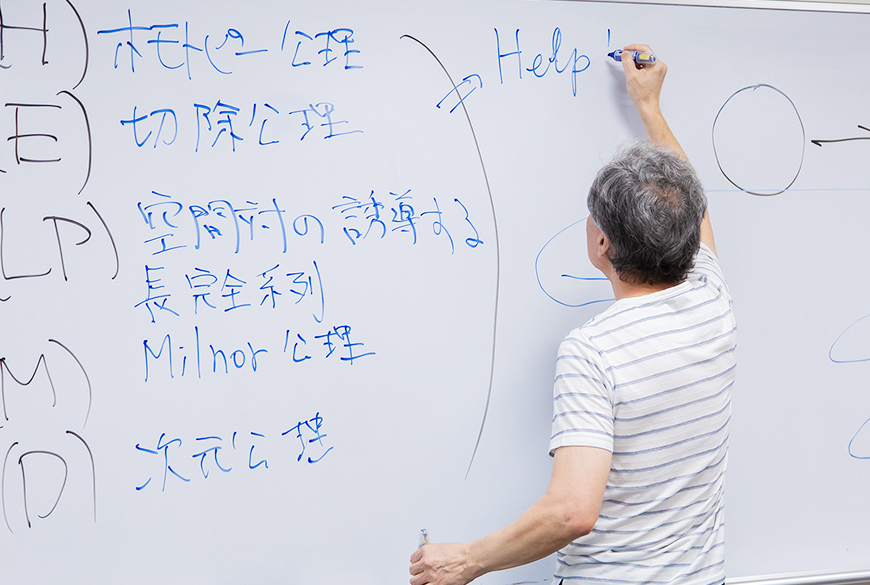 (H) ホモトピー公理
⇒ Help!
(E) 切除公理
(LP) 空間対の誘導する
長完全系列
(M) Milnor 公理
(D) 次元公理